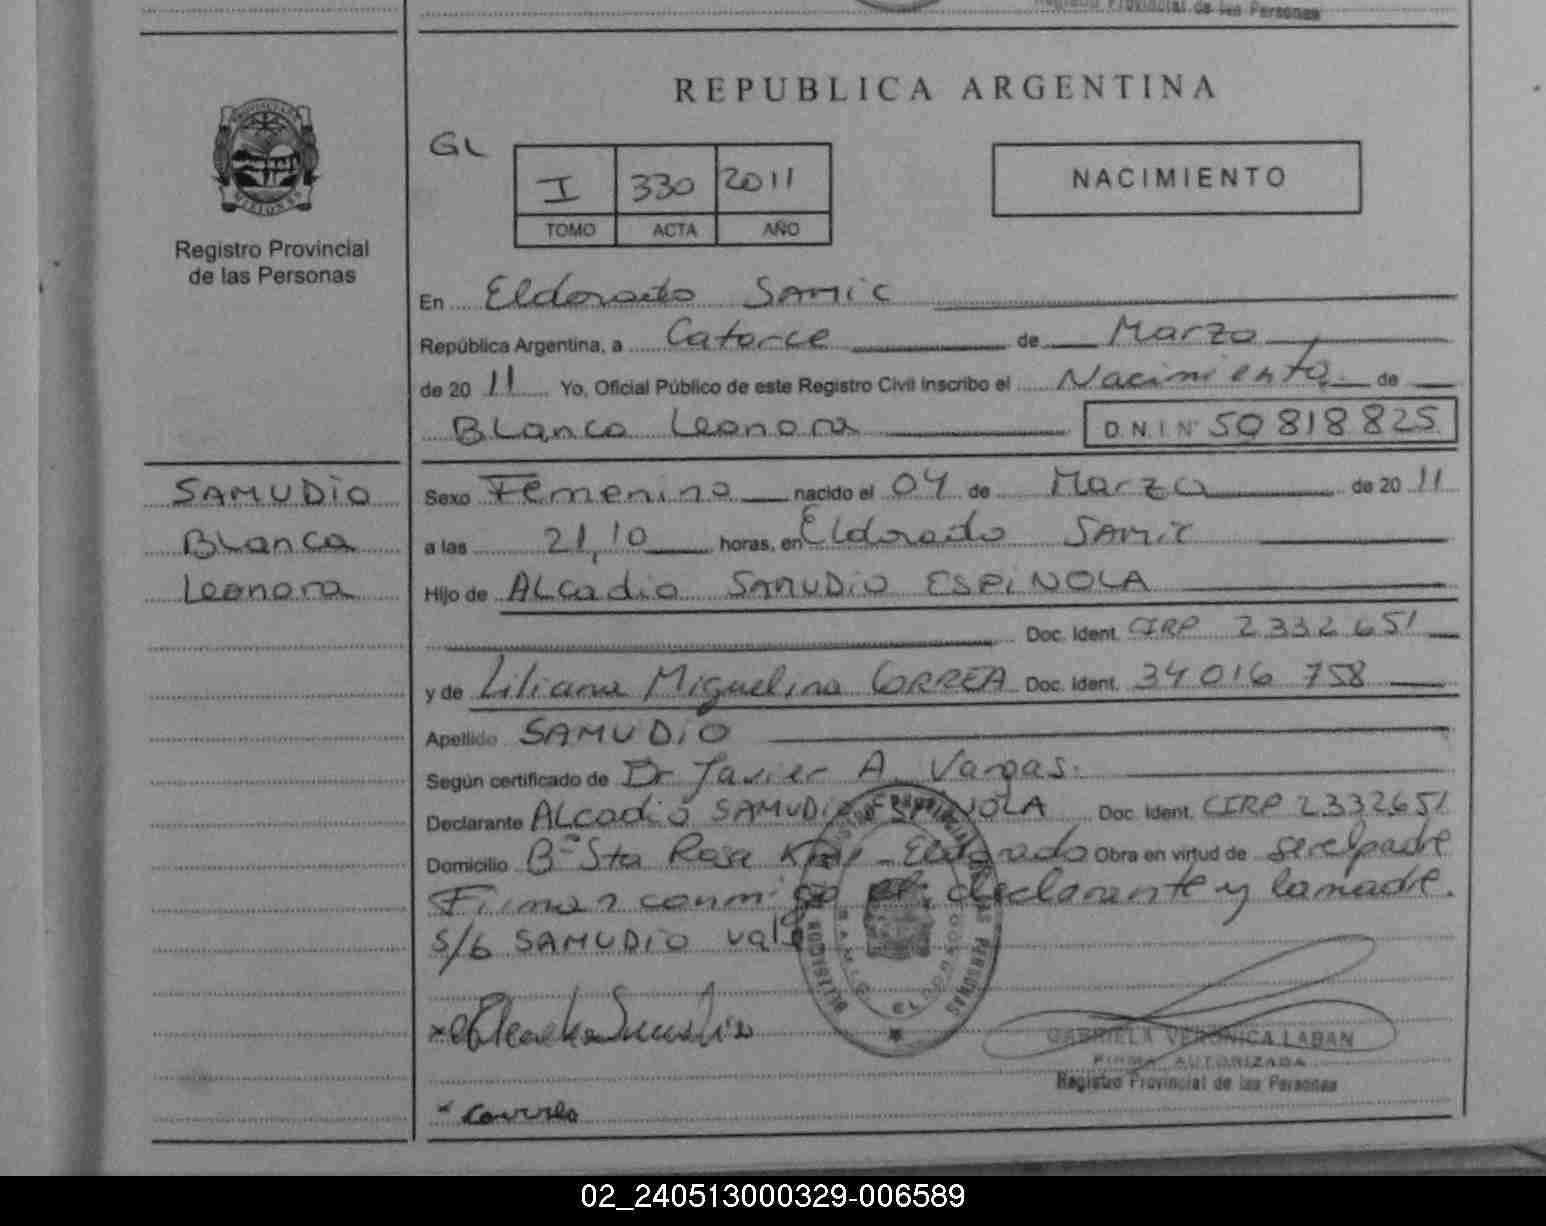 Registro Provincial de las Personas
REPUBLICA ARGENTINA
GL
I 330 2011
TOMO ACTA AÑO
NACIMIENTO
Registro Provincial
de las Personas
SAMUDIO
Blanca
Leonora
En Eldorado SAMIC
República Argentina, a Catorce de Marzo
de 20 11 Yo, Oficial Público de este Registro Civil Inscribo el Nacimiento de
Blanca Leonora D.N.I N° 50818825
Sexo Femenino nacido el 04 de Marzo de 20 11
a las 21,10 horas, en Eldorado SAMIC
Hijo de ALcadio SAMUDIO ESPINOLA
Doc. Ident. CIRP 2332651
y de Liliana Miguelina CORREA Doc. Ident. 34 016 758
Apellido SAMUDIO
Según certificado de Dr Javier A. Vargas.
Declarante ALcadio SAMUDIO ESPINOLA Doc. Ident. CIRP 2332651
Domicilio B° Sta Rosa Eldorado Obra en virtud de ser el padre
Firman conmigo el declarante y la madre.
S/b SAMUDIO vale
GABRIELA VERONICA LABAN
FIRMA AUTORIZADA
Registro Provincial de las Personas
02_240513000329-006589